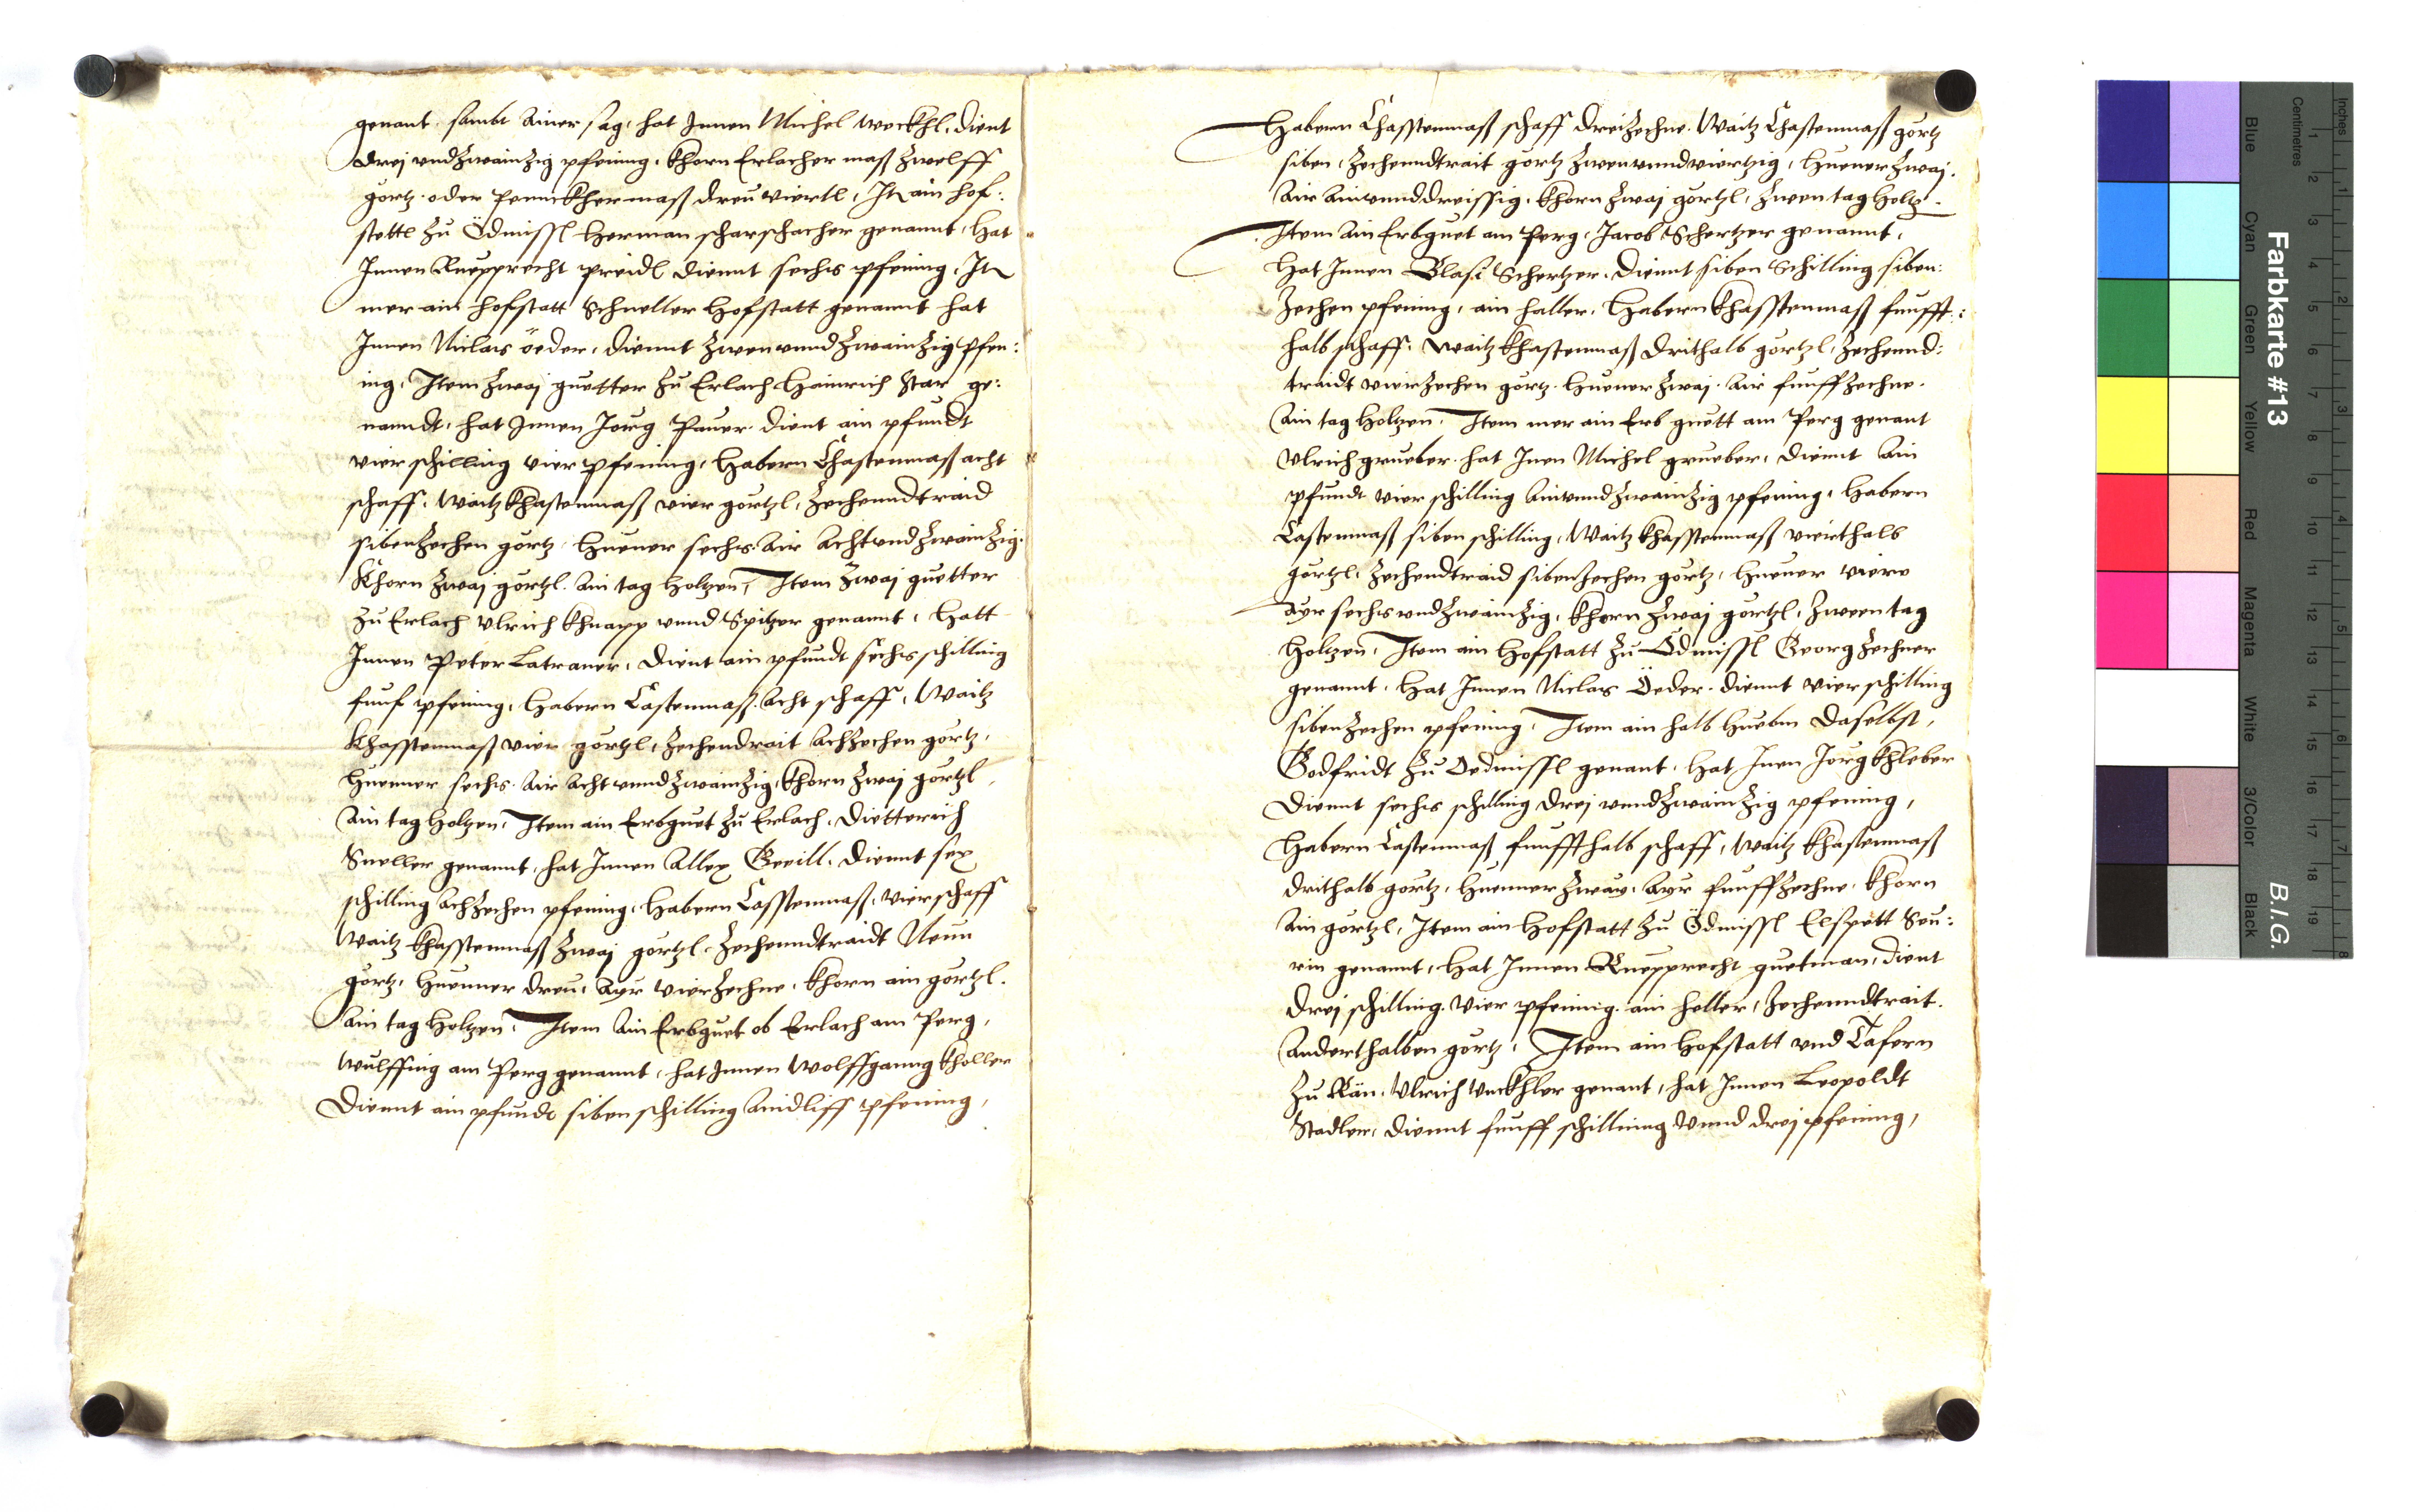 genant, sambt ainer sag, hat Innen Michel weckhl, dient
drej vnd zwainzig pfening, khorn Erlacher mass zwelff
görtz, oder Penuckher mass dreu viertl, It ain hof:
stettl zu Ödmissl Herman scharschacher genannt, hat
Innen Ruepprecht preidl diennt sechs pfening, It
mer ain hofstatt Schneller hofstatt genannt hat
Innen Niclas öeder, diennt zwen vnnd zwainzig pfen:
ing, Item zwaj guetter zu Erlach Hainrich Star ge:
nanndt, hat Innen Jorg Paner dient ain pfundt
vier schilling vier pfening, Habern Chastenmaß acht
schaff, Waitz khastenmaß vier görtzl, Zechenndtraid
sibenzechen görtz, huener sechs Air Acht vnd zwainzig,
Khorn zwaj görtzl. Ain tag holtzen, Item zwaj guetter
zu Erlach Vlrich Khnapp vnnd Spitzer genannt, hatt
Innen Peter Latraner, dient ain pfundt sechs schilling
funf pfening, Habern Castenmaß Acht schaff, Waitz
Khasstenmaß vier görtzl, Zechendrait Achzechen görtz,
Huenner sechs Air Acht vnnd zwainzig, khorn zwaj görtzl,
Ain tag holtzen, Item ain Erbguet zu Erlach, Dietterich
Sneller genannt, hat Innen Allex Greill, diennt sex
schilling Achzechen pfening, Habern Casstenmaß, vier schaff
Waitz khasstenmaß zwaj görtzl, Zechenndtraidt Neun
görtz, Huenner dreu, Ayr vierzechne, khorn ain görtzl.
Ain tag holtzen, Item Ain Erbguet ob Erlach am Perg,
Wulffing am Perg genannt, hat Innen Wolffganng Kholler
Diennt ain pfundt siben schilling Aindliff pfening,
Habern Chasstenmaß schaff dreizechne, Waitz Chastenmaß görtz
siben, Zechenndtrait görtz zwen vnnd viertzig, Huener zwaj,
Air Ain vnnd dreissig, khorn zwaj görtzl, zwen tag holtz.
Item Ain Erbguet am Perg, Jacob Schertzer genannt,
hat Innen Blasi Schertzer, Diennt siben Schilling siben:
zechen pfening, ain haller, Habern khasstenmaß funfft:
halb schaff, Waitz khastenmaß drithalb görtzl, Zechennd:
traidt vierzechen görtz, Huener zwaj, Air funffzechne.
Ain tag holtzen, Item mer ain Erb guett am Perg genant
Vlrich grueber, hat Inen Michel grueber, diennt Ain
pfundt vier schilling Ain vnnd zwainzig pfening, Habern
Castenmaß siben schilling, Waitz khasstenmaß vierthalb
görtzl, Zechendtraid sibenzechen görtz, Huener viere
Ayr sechs vnd zwainzig, khorn zwaj görtzl, zween tag
holtzen, Item ain hofstatt zu Ödmissl Georg Zechner
genannt, hat Innen Niclas Öeder, diennt vier schilling
sibenzechen pfening, Item ain halb Huebm daselbst,
Godfridt zu Oedmissl genant, hat Inen Jorg khleber
Diennt sechs schilling drej vnnd zwainzig pfening,
Habern Castenmaß funffthalb schaff, Waitz khastenmaß
drithalb görtz, Huenner zway, Ayr funffzechne, khorn
Ain görtzl, Item ain hofstatt zu Ödmissl Elspett Seu:
rin genannt, hat Innen Ruepprecht guetman, dient
drej schilling vier pfening ain heller, Zechenndtrait
Anderthalben görtz, Item ain hofstatt vnd Tafern
zu Rän, Vlrich Veckhler genant, hat Innen Leopoldt
Stadler, diennt funff schilling vnnd drej pfening,
Farbkarte #13
B.I.G.
Inches
Centimetres
Blue
Cyan
Green
Yellow
Red
Magenta
White
3/Color
Black
1 2 3 4 5 6 7 8 9 10 11 12 13 14 15 16 17 18 19
1 2 3 4 5 6 7 8